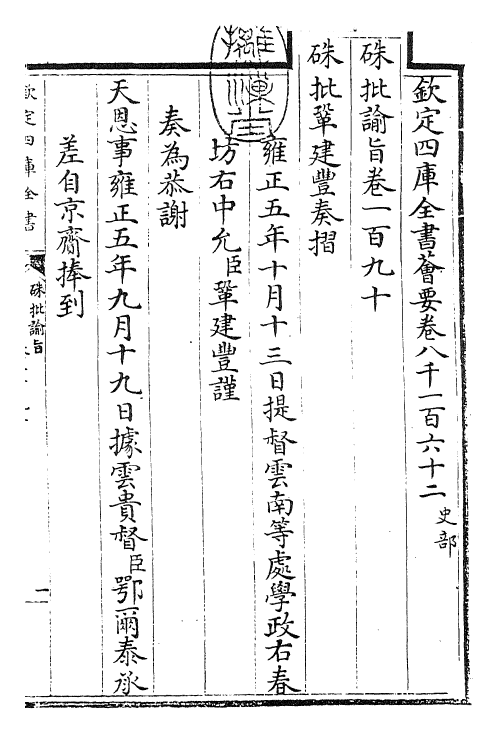 欽定四庫全書薈要卷八千一百六十二
史部
硃批諭旨卷一百九十
硃批鞏建豐奏摺
雍正五年十月十三日提督雲南等處學政右春
坊右中允臣鞏建豐謹
奏為恭謝
天恩事雍正五年九月十九日據雲貴督臣鄂爾泰承
差自京齎捧到
欽定四庫全書
硃批諭旨
一